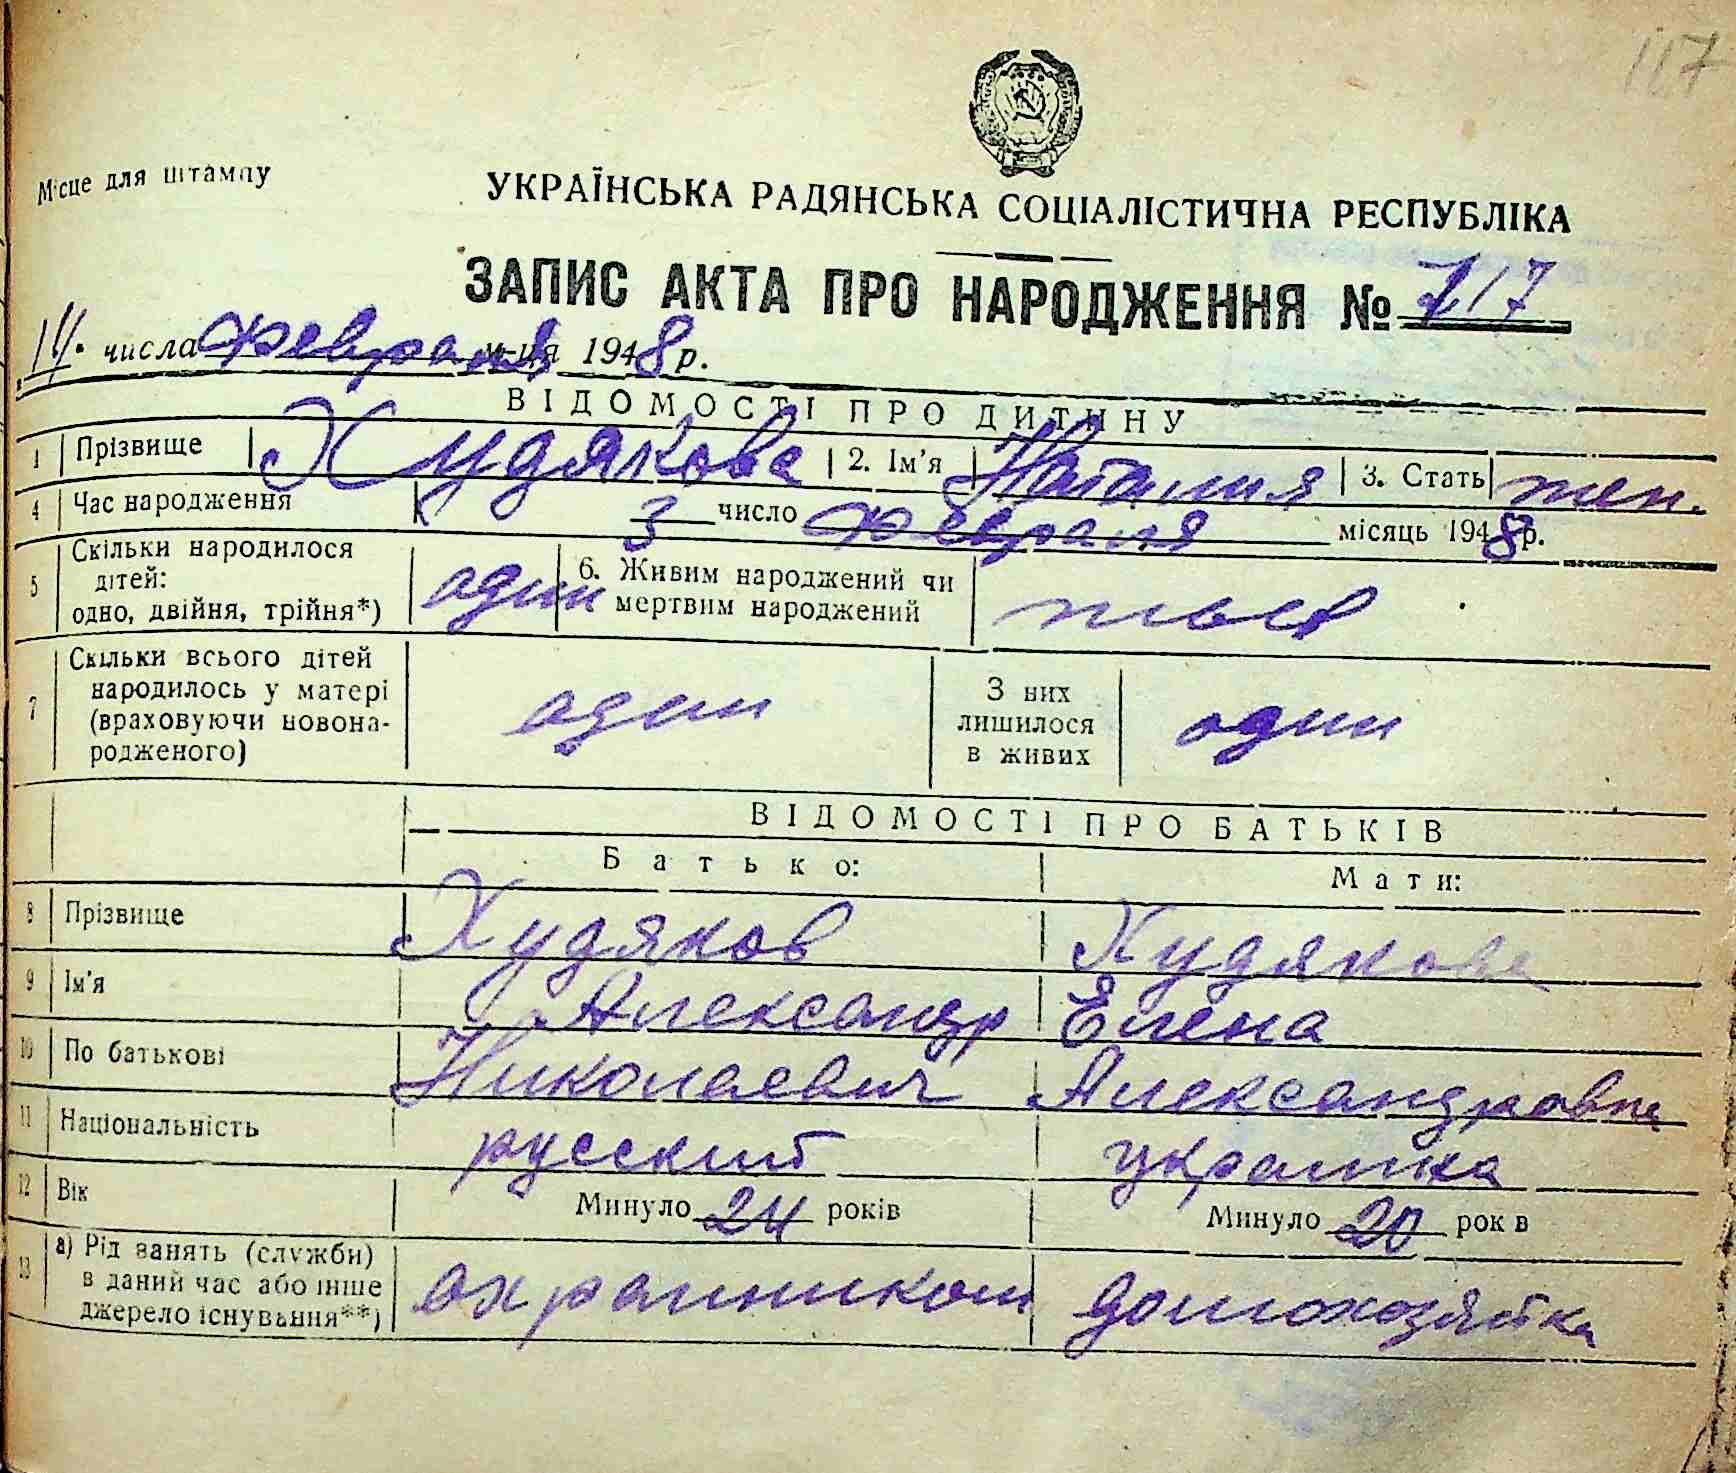 117
Місце для штампу
УКРАЇНСЬКА РАДЯНСЬКА СОЦІАЛІСТИЧНА РЕСПУБЛІКА
ЗАПИС АКТА ПРО НАРОДЖЕННЯ № 717
14. числа февраля м-ця 1948 р.
ВІДОМОСТІ ПРО ДИТИНУ
1 Прізвище Худякова 2. Ім'я Наталия 3. Стать жен.
4 Час народження 3 число февраля місяць 1948 р.
5 Скільки народилося дітей: одно, двійня, трійня*) один 6. Живим народжений чи мертвим народжений жив
7 Скільки всього дітей народилось у матері (враховуючи новонародженого) один З них лишилося в живих один
ВІДОМОСТІ ПРО БАТЬКІВ
Батько: Мати:
8 Прізвище Худяков Худякова
9 Ім'я Александр Елена
10 По батькові Николаевич Александровна
11 Національність русский украинка
12 Вік Минуло 24 років Минуло 20 рок в
13 а) Рід занять (служби) в даний час або інше джерело існування**) охранником домохозяйка